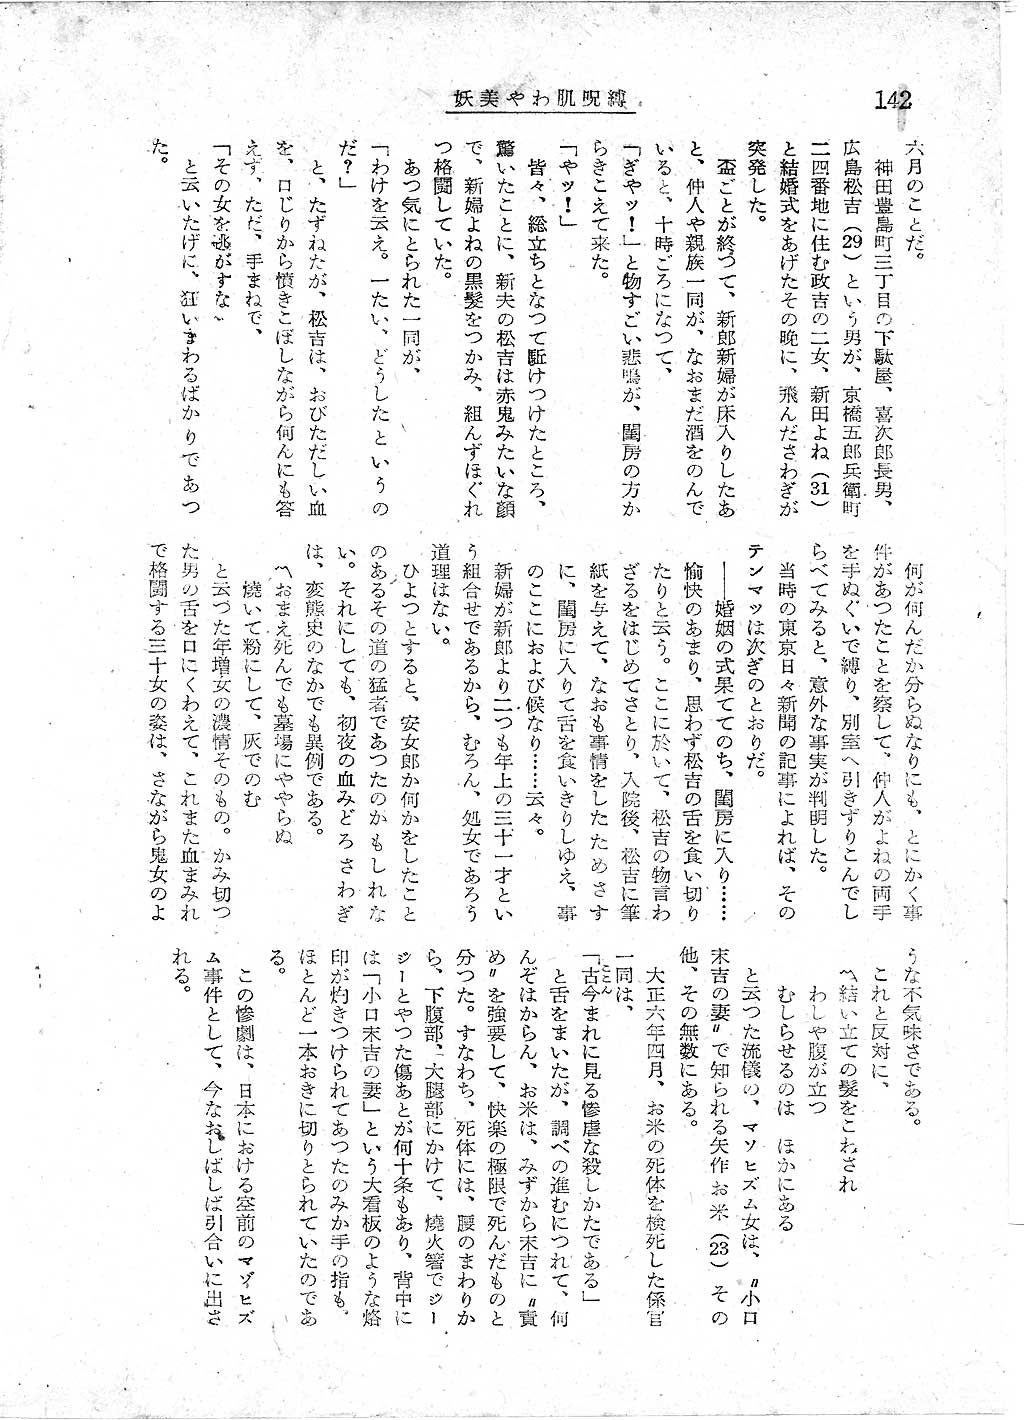 142
妖美やわ肌呪縛
六月のことだ。
神田豊島町三丁目の下駄屋、喜次郎長男、
広島松吉（29）という男が、京橋五郎兵衛町
二四番地に住む政吉の二女、新田よね（31）
と結婚式をあげたその晩に、飛んださわぎが
突発した。
盃ごとが終つて、新郎新婦が床入りしたあ
と、仲人や親族一同が、なおまだ酒をのんで
いると、十時ごろになつて、
「ぎやッ！」と物すごい悲鳴が、閨房の方か
らきこえて来た。
「やッ！」
皆々、総立ちとなつて駈けつけたところ、
驚いたことに、新夫の松吉は赤鬼みたいな顔
で、新婦よねの黒髪をつかみ、組んずほぐれ
つ格闘していた。
あつ気にとられた一同が、
「わけを云え。一たい、どうしたというの
だ？」
と、たずねたが、松吉は、おびただしい血
を、口じりから憤きこぼしながら何んにも答
えず、ただ、手まねで、
「その女を逃がすな〟
と云いたげに、狂いまわるばかりであつ
た。
何が何んだか分らぬなりにも、とにかく事
件があつたことを察して、仲人がよねの両手
を手ぬぐいで縛り、別室へ引きずりこんでし
らべてみると、意外な事実が判明した。
当時の東京日々新聞の記事によれば、その
テンマツは次ぎのとおりだ。
――婚姻の式果ててのち、閨房に入り……
愉快のあまり、思わず松吉の舌を食い切り
たりと云う。ここに於いて、松吉の物言わ
ざるをはじめてさとり、入院後、松吉に筆
紙を与えて、なおも事情をしたためさす
に、閨房に入りて舌を食いきりしゆえ、事
のここにおよび候なり……云々。
新婦が新郎より二つも年上の三十一才とい
う組合せであるから、むろん、処女であろう
道理はない。
ひよつとすると、安女郎か何かをしたこと
のあるその道の猛者であつたのかもしれな
い。それにしても、初夜の血みどろさわぎ
は、変態史のなかでも異例である。
〽おまえ死んでも墓場にややらぬ
焼いて粉にして、灰でのむ
と云つた年増女の濃情そのもの。かみ切つ
た男の舌を口にくわえて、これまた血まみれ
で格闘する三十女の姿は、さながら鬼女のよ
うな不気味さである。
これと反対に、
〽結い立ての髪をこわされ
わしや腹が立つ
むしらせるのは　ほかにある
と云つた流儀の、マソヒズム女は、〝小口
末吉の妻〟で知られる矢作お米（23）その
他、その無数にある。
大正六年四月、お米の死体を検死した係官
一同は、
「古今まれに見る惨虐な殺しかたである」
と舌をまいたが、調べの進むにつれて、何
んぞはからん、お米は、みずから末吉に〝責
め〟を強要して、快楽の極限で死んだものと
分つた。すなわち、死体には、腰のまわりか
ら、下腹部、大腿部にかけて、焼火箸でジー
ジーとやつた傷あとが何十条もあり、背中に
は「小口末吉の妻」という大看板のような烙
印が灼きつけられてあつたのみか手の指も、
ほとんど一本おきに切りとられていたのであ
る。
この惨劇は、日本における空前のマゾヒズ
ム事件として、今なおしばしば引合いに出さ
れる。